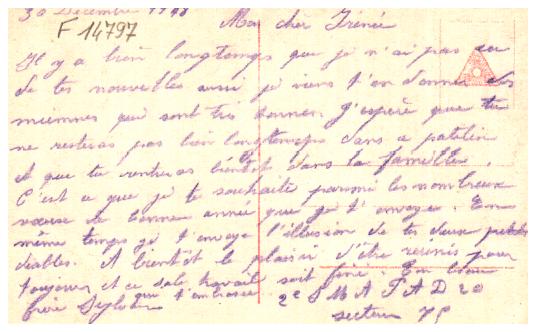 30 Décembre 19
F 14797
Mon cher Irénée
Il y a bien longtemps que je n'ai pas eu
de tes nouvelles aussi je viens t'en donner des
miennes qui sont très bonnes. J'espère que tu
ne resteras pas bien longtemps dans ce patelin
et que tu rentreras bientôt dans la famille.
C'est ce que je te souhaite parmi les nombreux
voeux de bonne année que je t'envoye. En
même temps je t'envoye l'illusion de tes deux petits
diables. A bientôt le plaisir d'être réunis pour
toujours et ce sale travail soit fini. Ton
frère Sylvain qui t'embrasse. 2e S M A F A D 20
secteur 75